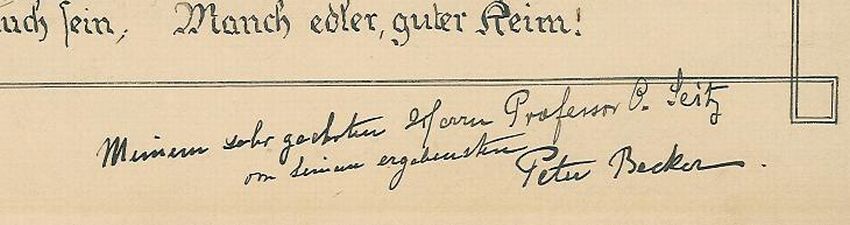 uch sein, Manch edler, guter Reim!
Meinem sehr geehrten Herrn Professor O. Seitz
von seinem ergebensten Peter Becker.